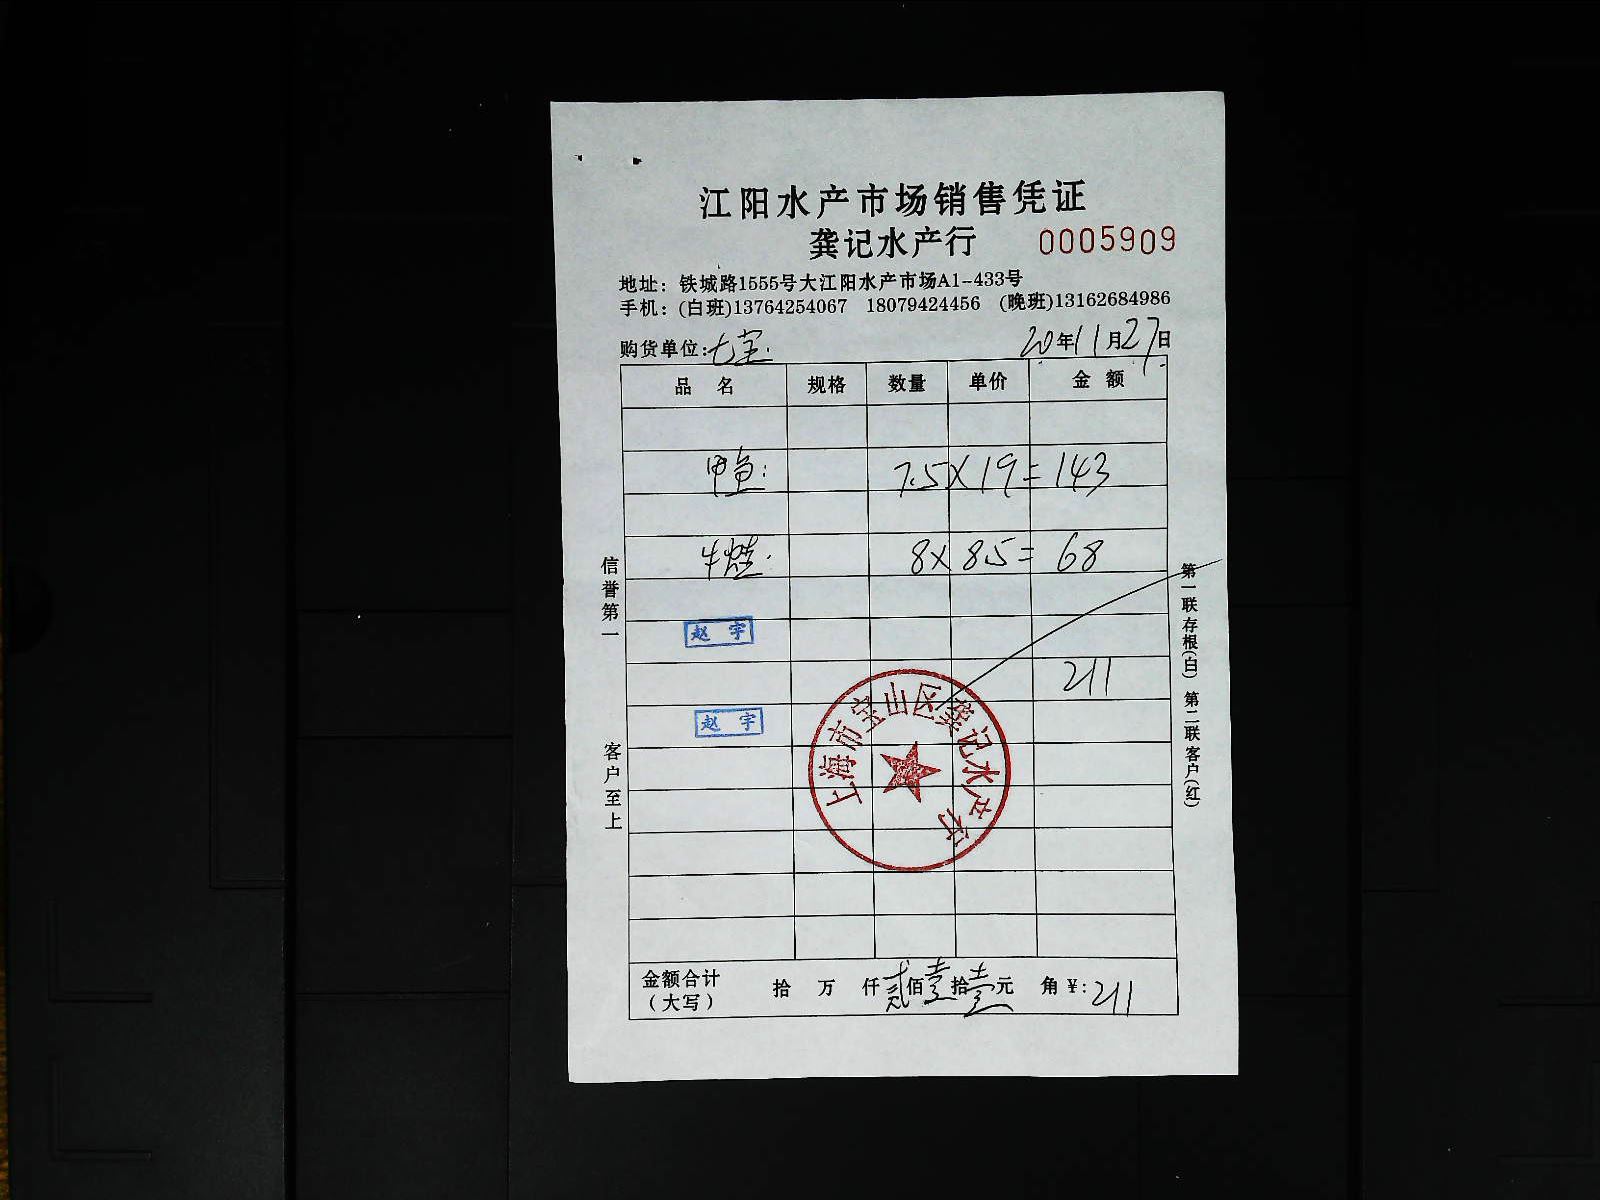 江阳水产市场销售凭证
龚记水产行 0005909
地址：铁城路1555号大江阳水产市场A1-433号
手机：(白班)13764254067 18079424456 (晚班)13162684986
购货单位:七宝. 20年11月27日
品 名 规格 数量 单价 金 额
甲鱼: 7.5×19=143
牛 8×85=68
赵 宇
211
赵 宇
上海市宝山区龚记水产行
金额合计（大写） 拾 万 仟贰佰壹拾壹元 角￥:211
信誉第一 客户至上
第一联存根(白) 第二联客户(红)